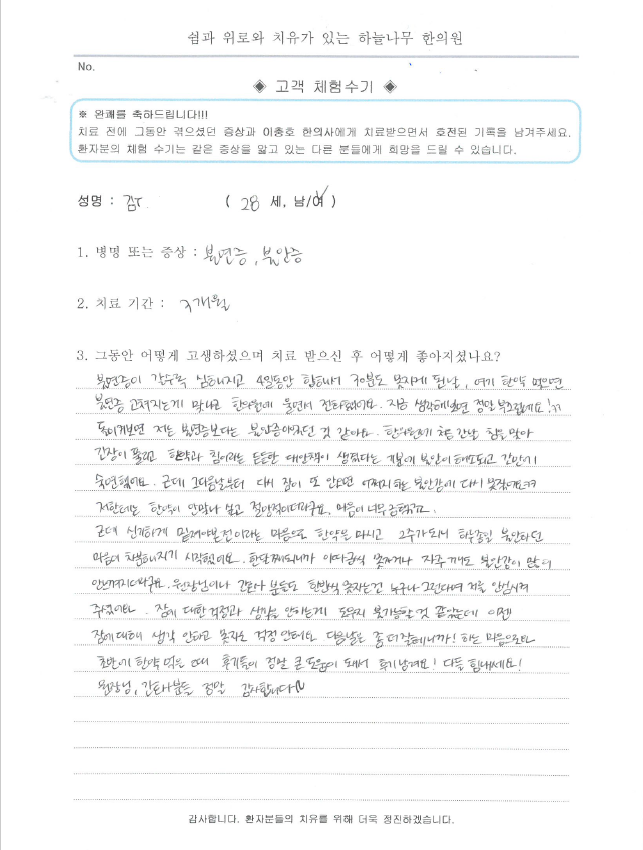 쉼과 위로와 치유가 있는 하늘나무 한의원
No.
◈ 고객 체험수기 ◈
※ 완쾌를 축하드립니다!!!
치료 전에 그동안 겪으셨던 증상과 이종호 한의사에게 치료받으면서 호전된 기록을 남겨주세요.
환자분의 체험 수기는 같은 증상을 앓고 있는 다른 분들에게 희망을 드릴 수 있습니다.
성명 : ( 28 세, 남/여 )
1. 병명 또는 증상 : 불면증, 불안증
2. 치료 기간 : 3개월
3. 그동안 어떻게 고생하셨으며 치료 받으신 후 어떻게 좋아지셨나요?
불면증이 갈수록 심해지고 4일동안 합해서 30분도 못자게 된 날, 여기 한약 먹으면
불면증 고쳐지는게 맞냐고 한의원에 울면서 전화했어요. 지금 생각해보면 정말 부끄럽네요!ㅋㅋ
돌이켜보면 저는 불면증보다는 불안증이었던 것 같아요. 한의원에 처음 간날 침을 맞아
긴장이 풀리고 한약과 침이라는 든든한 대안책이 생겼다는 기분에 불안이 해소되고 간만에
숙면했어요. 근데 그다음날부터 다시 잠이 또 안오면 어쩌지 하는 불안감에 다시 못잤어요
저한테는 한약이 안맞나 싶고 절망적이더라구요. 마음이 너무 급했죠.
근데 신기하게 믿져야본전이라는 마음으로 한약을 마시고 2주가 되서 하루종일 불안하던
마음이 차분해지기 시작했어요. 한달째되니까 야다금식 못자거나 자주 깨도 불안감이 많이
안느껴지더라구요. 원장님이나 간호사 분들도 한번씩 못자는건 누구나 그런다며 저를 안심시켜
주셨어요. 잠에 대한 걱정과 생각을 안하는게 도무지 불가능할것 같았는데 이젠
잠에 대해 생각 안하고 못자도 걱정 안해요. 다음날은 좀 더 잘테니까! 하는 마음으로
초반에 한약 먹을 때 후기들이 정말 큰 도움이 되서 후기 남겨요! 다들 힘내세요!
원장님, 간호사분들 정말 감사합니다
감사합니다. 환자분들의 치유를 위해 더욱 정진하겠습니다.